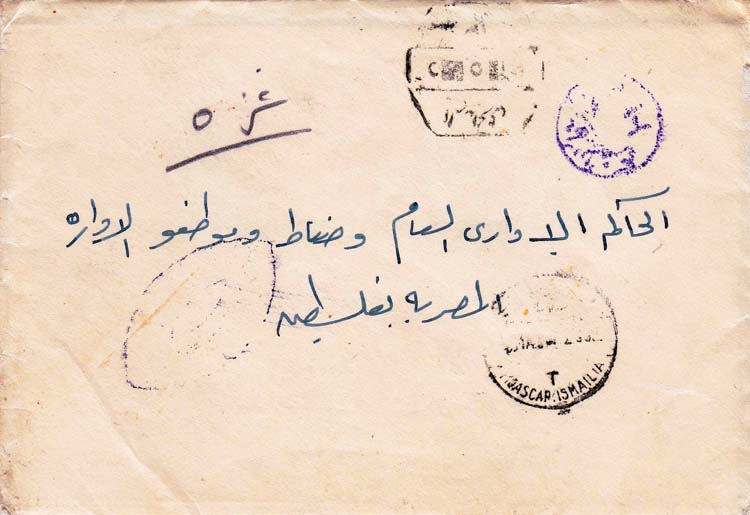 غزه
الحاكم الادارى العام وضباط وموظفو الاداره
المصريه بفلسطين
T
MOASCAR-ISMAILIA